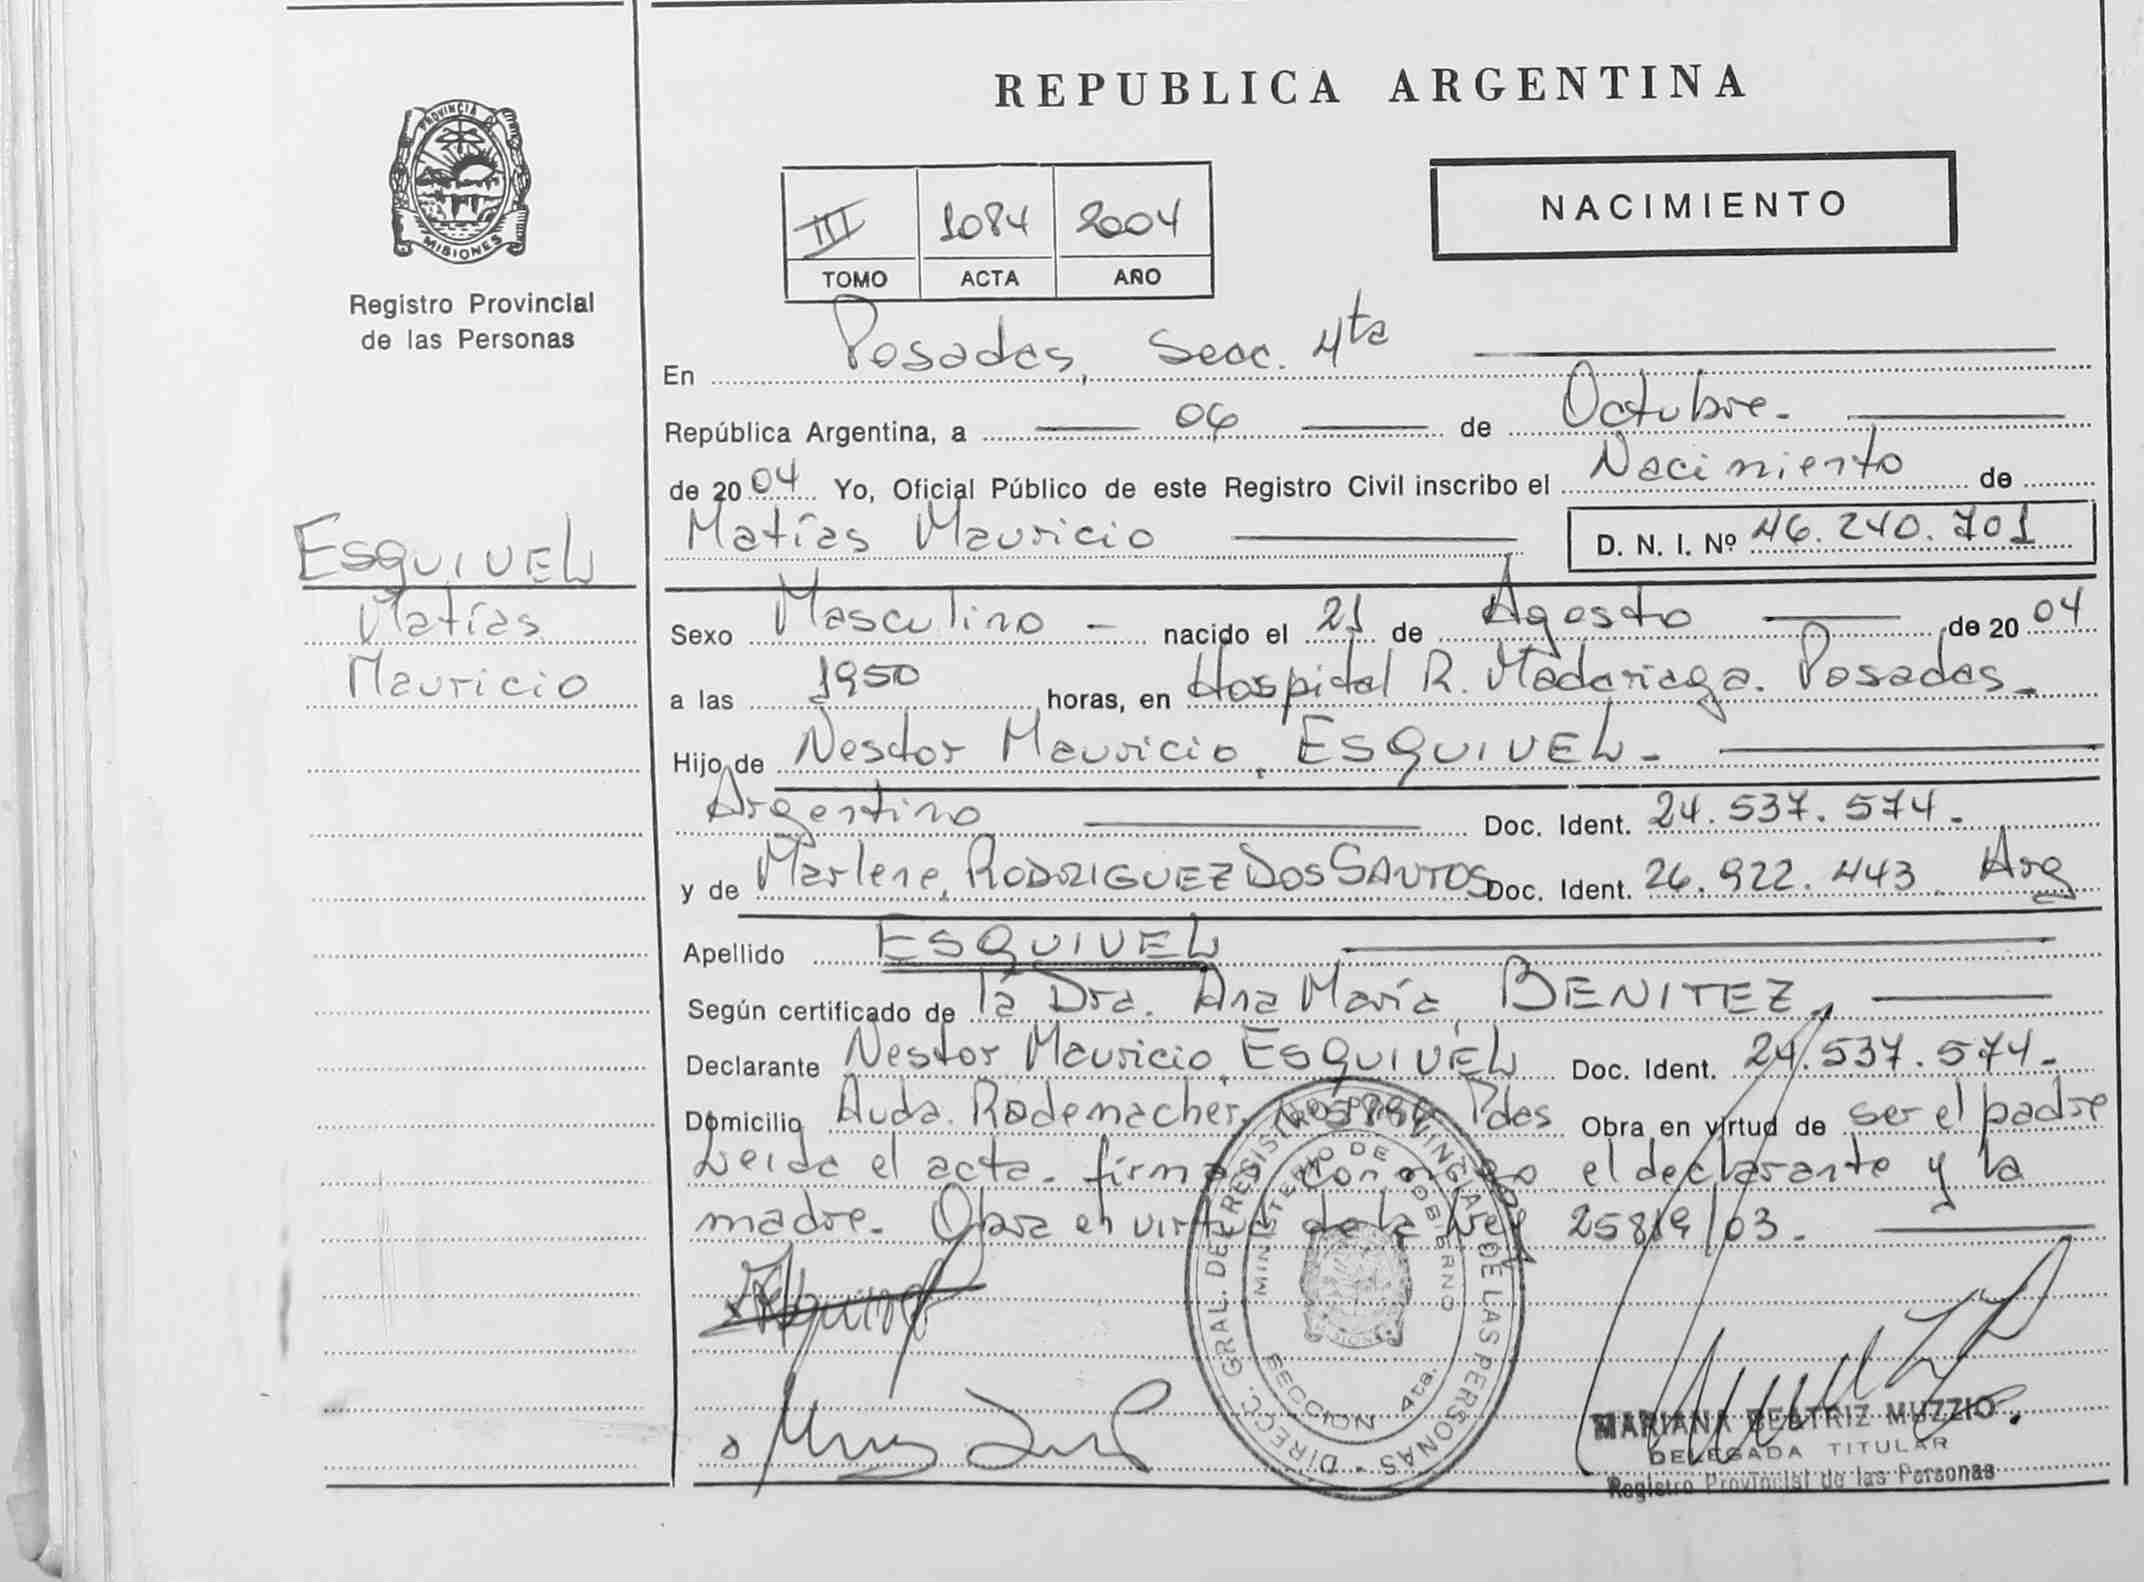 REPUBLICA ARGENTINA
PROVINCIA DE
MISIONES
Registro Provincial
de las Personas
III 1084 2004
TOMO ACTA AÑO
NACIMIENTO
En Posadas, Secc. 4ta
República Argentina, a 06 de Octubre.
de 2004 Yo, Oficial Público de este Registro Civil inscribo el Nacimiento de
Matías Mauricio D. N. I. Nº 46.240.701
ESQUIVEL
Matías
Mauricio
Sexo Masculino - nacido el 21 de Agosto de 2004
a las 1950 horas, en Hospital R. Madariaga. Posadas.
Hijo de Nestor Mauricio, ESQUIVEL-
Argentino Doc. Ident. 24.537.574.
y de Marlene, RODRIGUEZ DOS SANTOS Doc. Ident. 26.922.443. Arg
Apellido ESQUIVEL
Según certificado de la Dra. Ana María, BENITEZ.
Declarante Nestor Mauricio, ESQUIVEL Doc. Ident. 24.537.574.
Domicilio Avda. Rademacher, Pdas Obra en virtud de ser el padre
Leida el acta. firman conmigo el declarante y la
madre. Obra en virtud de la Ley 25819/03.
DIRECC. GRAL. DEL REGISTRO PROVINCIAL DE LAS PERSONAS -
MINISTERIO DE GOBIERNO
SECCION 4ta.
MARIANA BEATRIZ MUZZIO
DELEGADA TITULAR
Registro Provincial de las Personas